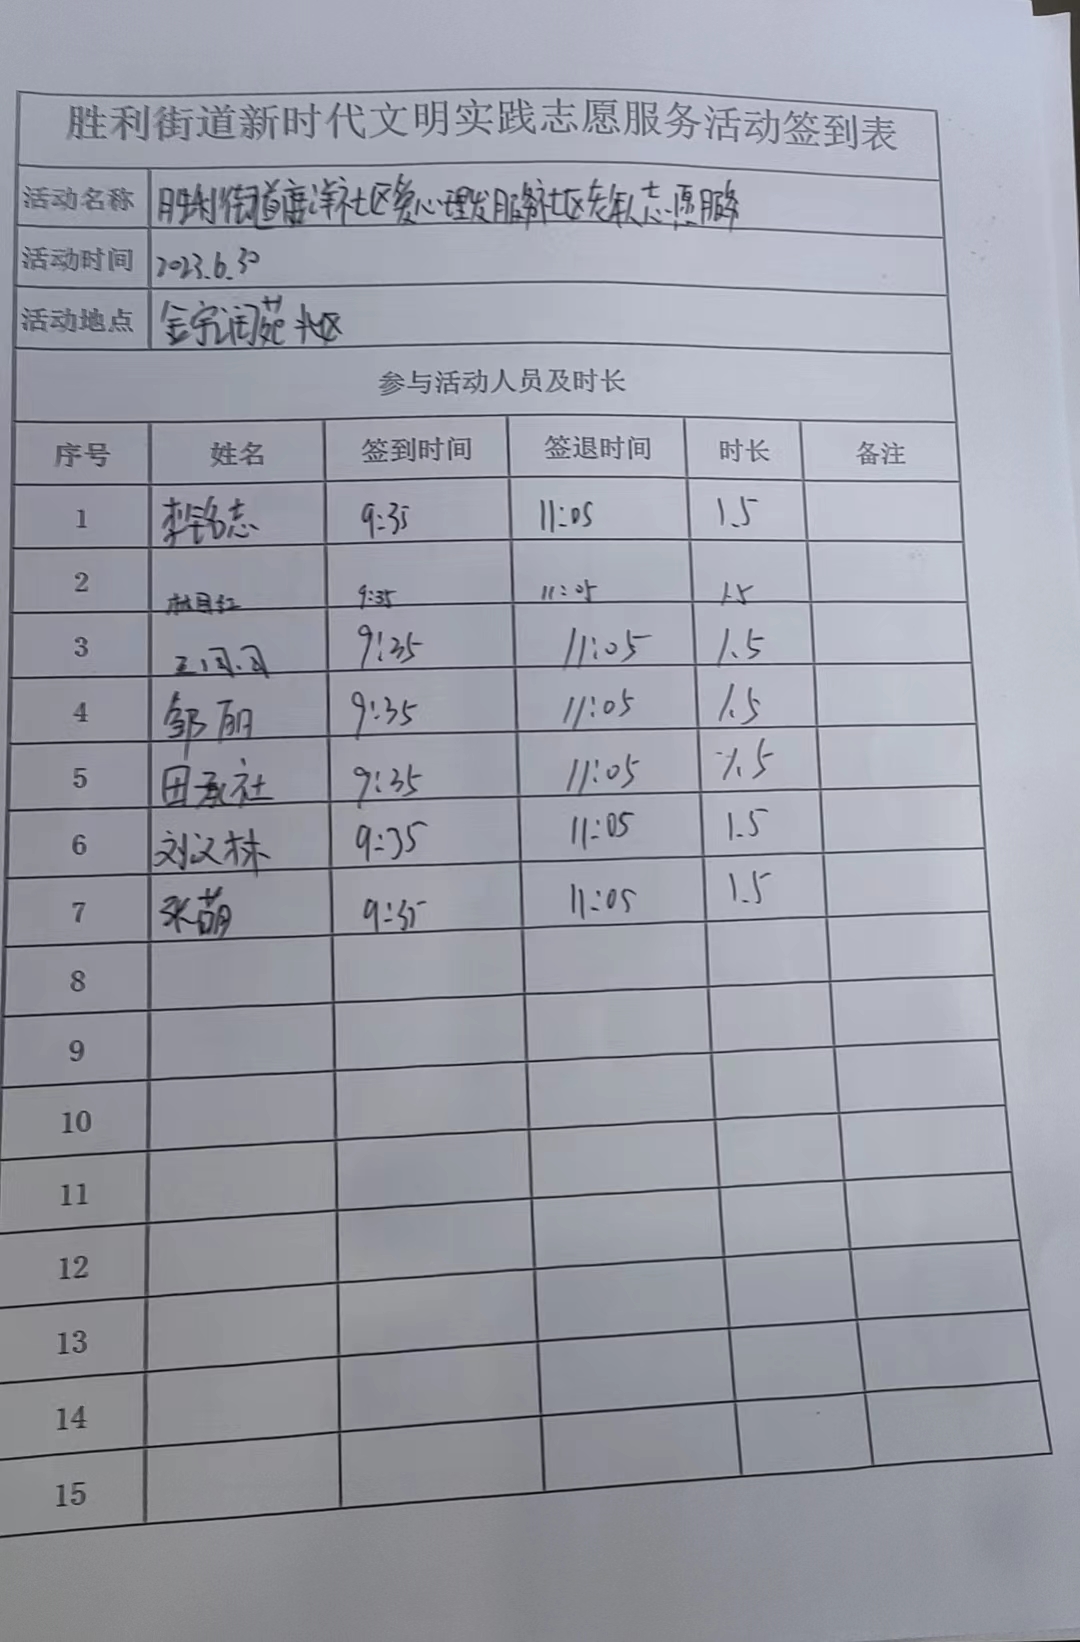 胜利街道新时代文明实践志愿服务活动签到表
活动名称 胜利街道唐洋社区爱心理发服务社区老年人志愿服务
活动时间 2023.6.30
活动地点 金宇润苑北区
参与活动人员及时长
序号 姓名 签到时间 签退时间 时长 备注
1 李铭志 9:35 11:05 1.5
2 9:35 11:05 1.5
3 王月月 9:35 11:05 1.5
4 邹丽 9:35 11:05 1.5
5 田承社 9:35 11:05 1.5
6 刘汉林 9:35 11:05 1.5
7 张萌 9:35 11:05 1.5
8
9
10
11
12
13
14
15